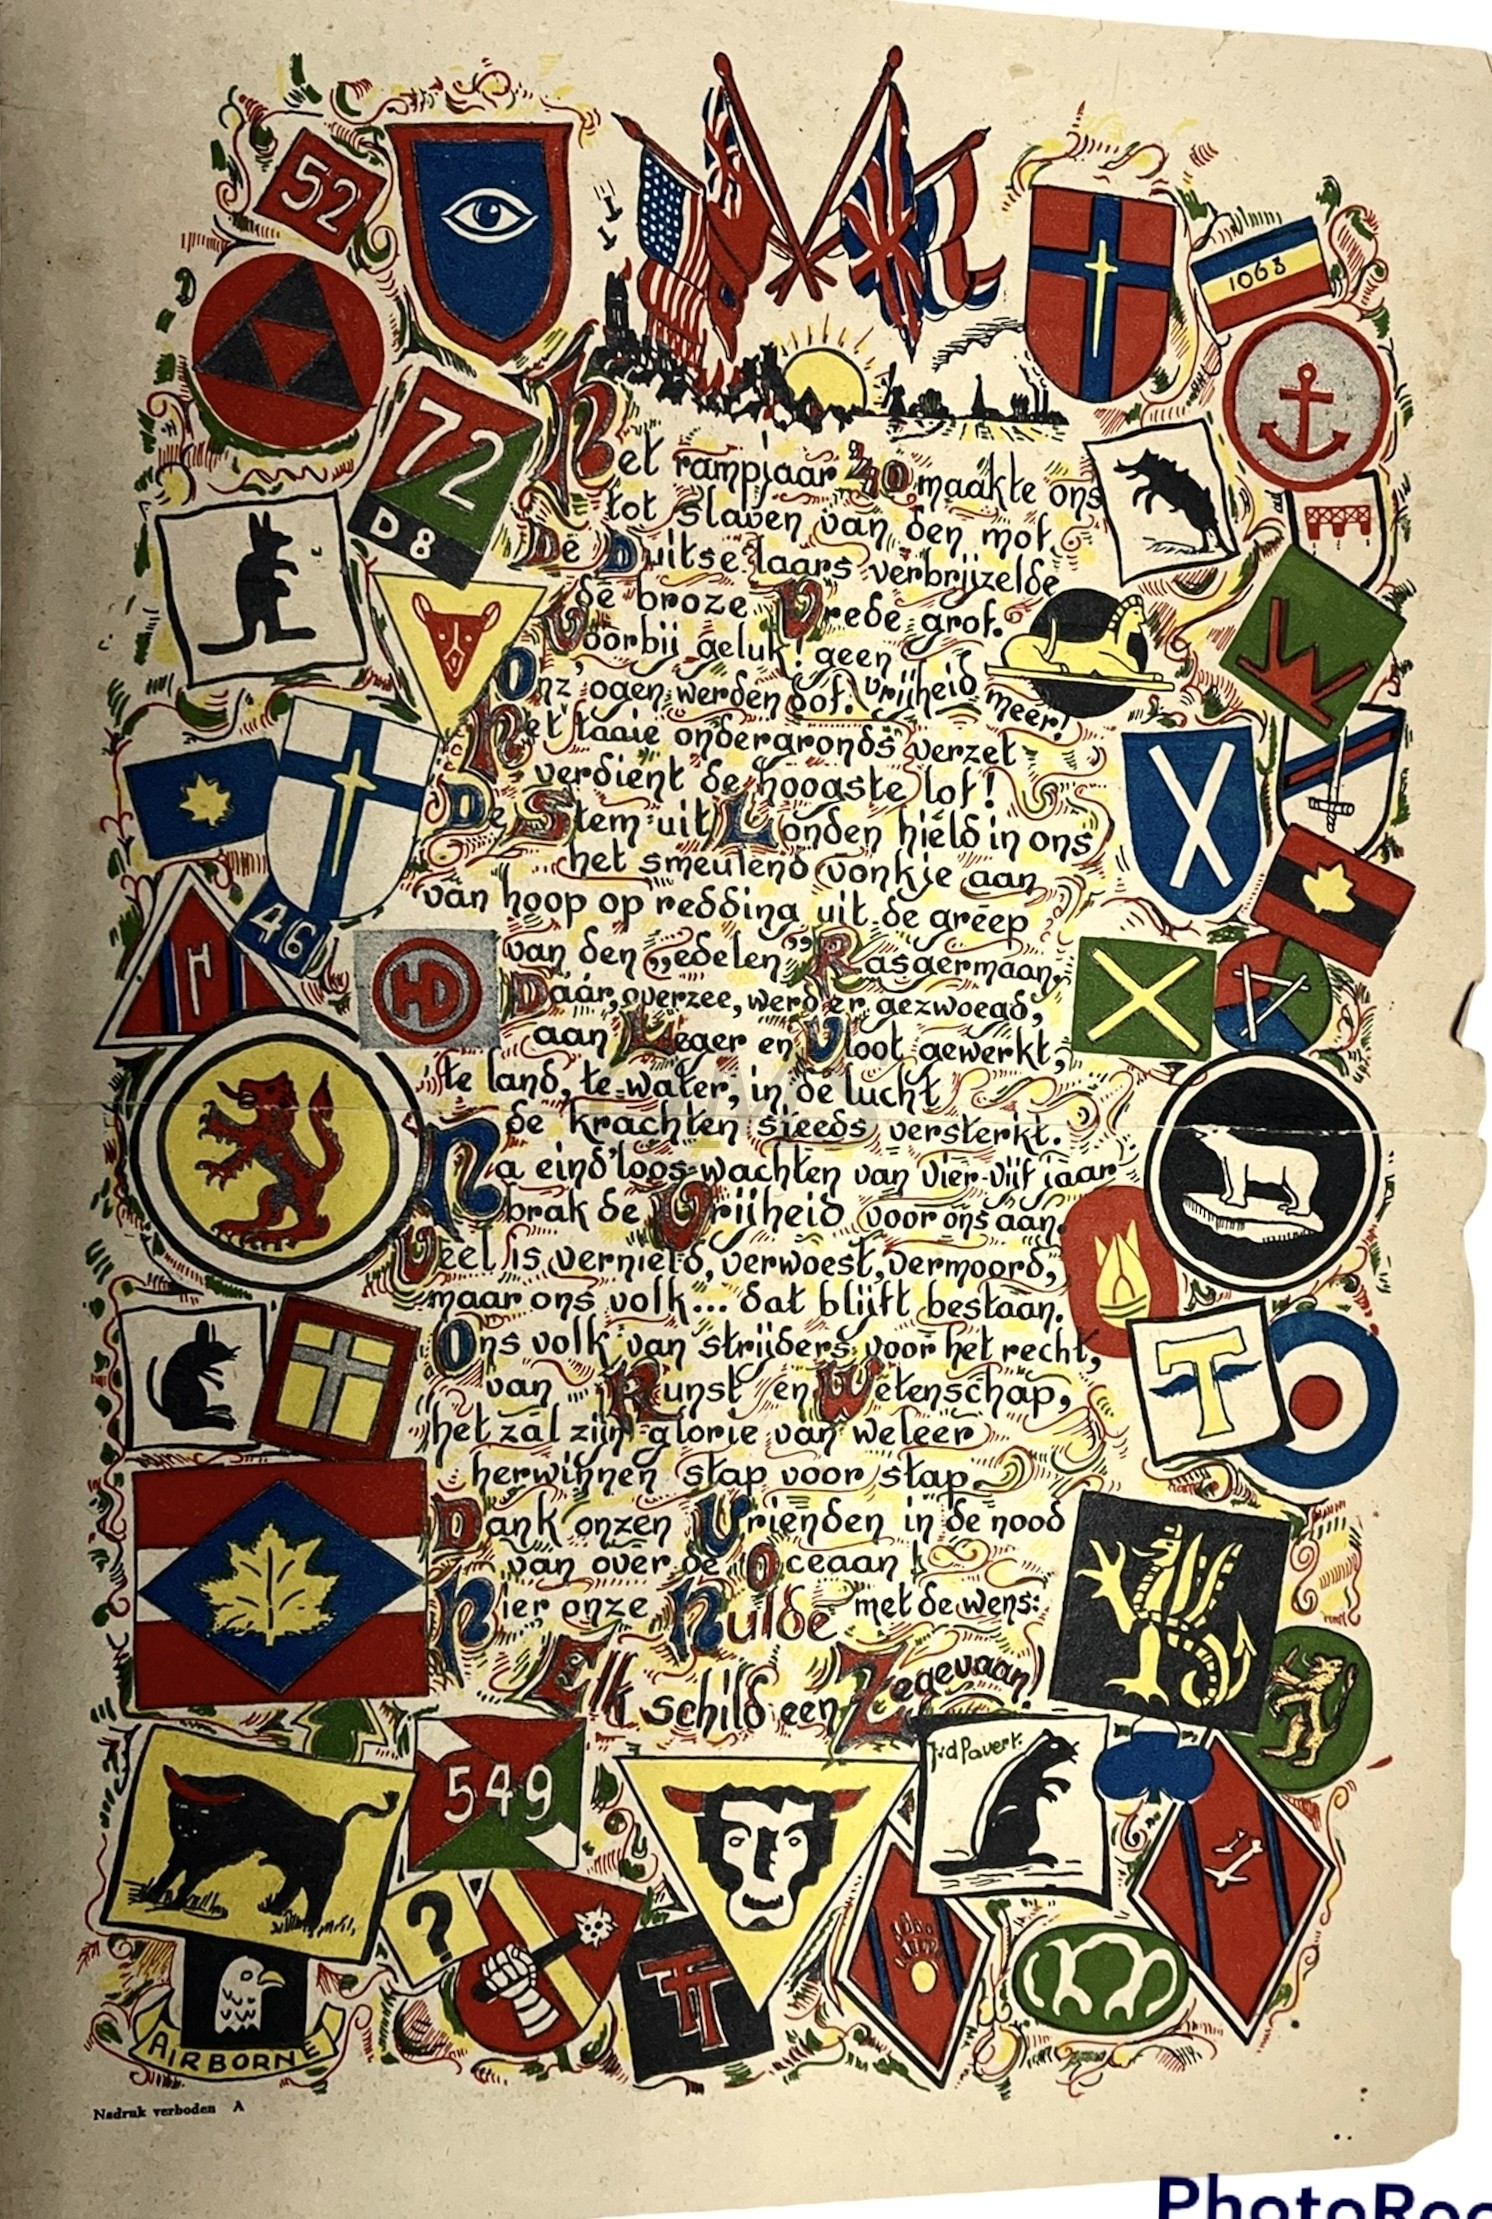 52
1063
72
D8
Het rampjaar 40 maakte ons
tot slaven van den mof.
De Duitse laars verbrijzelde
de broze Vrede grof.
Voorbij geluk! geen vrijheid meer!
Onz' ogen werden dof.
Het taaie ondergronds verzet
verdient de hoogste lof!
De Stem uit Londen hield in ons
het smeulend vonkje aan
van hoop op redding uit de greep
van den „edelen” Rasgermaan.
Dáár, overzee, werd er gezwoegd,
aan Leger en Vloot gewerkt,
te land, te water, in de lucht
de krachten steeds versterkt.
Na eind'loos wachten van vier-vijf jaar
brak de Vrijheid voor ons aan.
Veel is vernield, verwoest, vermoord,
maar ons volk... dat blijft bestaan.
Ons volk van strijders voor het recht,
van Kunst en Wetenschap,
het zal zijn glorie van weleer
herwinnen stap voor stap.
Dank onzen Vrienden in de nood
van over de Oceaan!
Hier onze Hulde met de wens:
Elk schild een Zegevaan!
46
HD
H
T
549
J.v.d. Pavert.
?
AIRBORNE
Nadruk verboden A
PhotoRoo